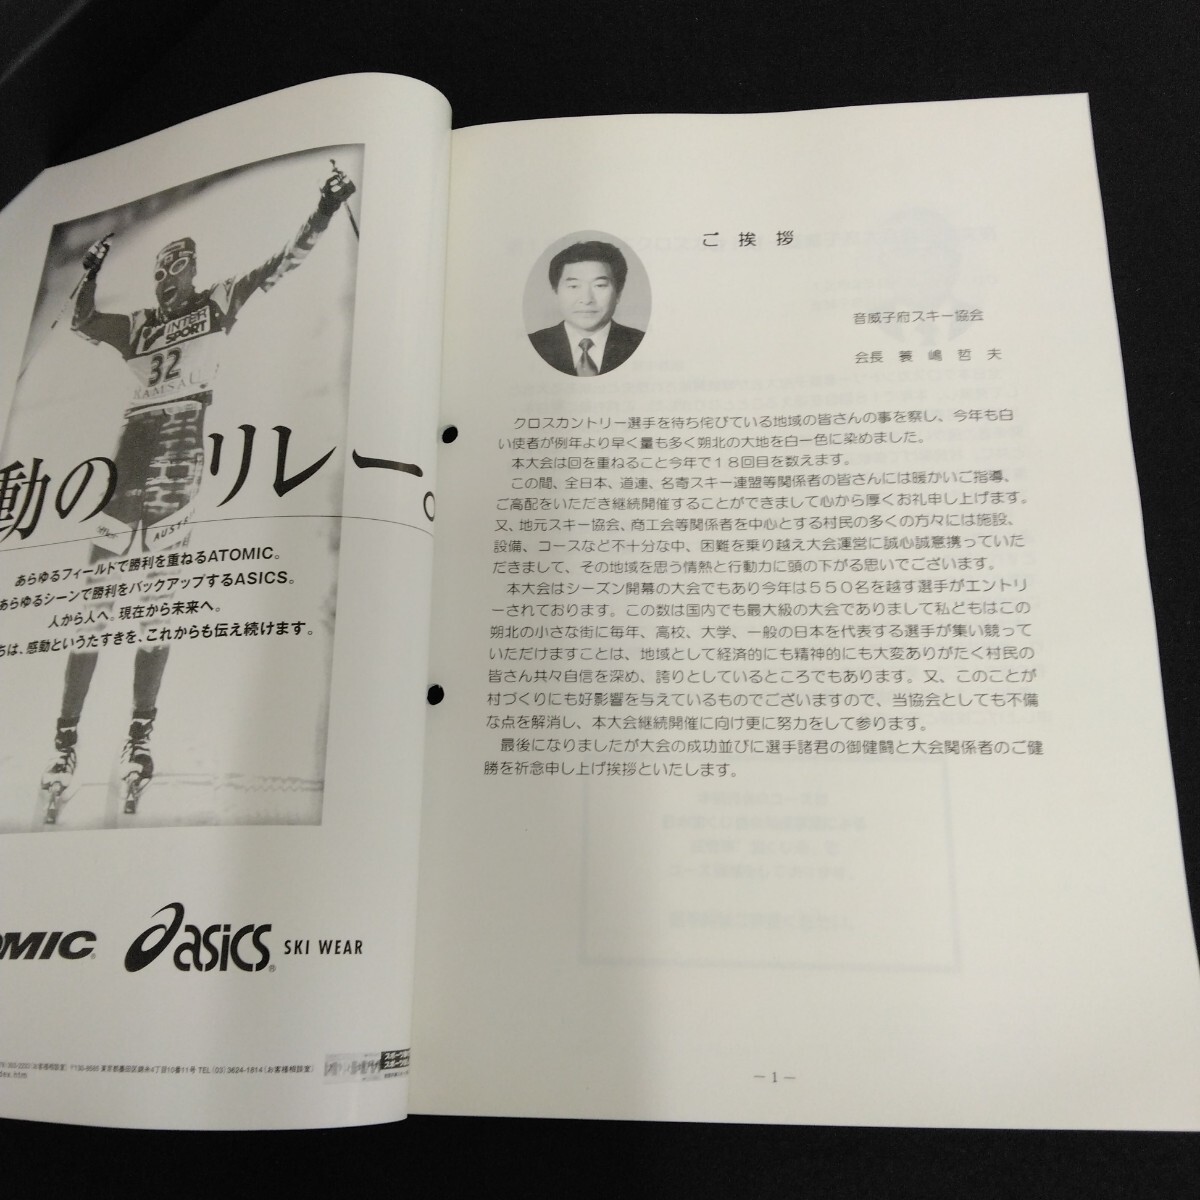 INTER
SPORT
32
RAMSAU
動のリレー。
AUST
あらゆるフィールドで勝利を重ねるATOMIC。
あらゆるシーンで勝利をバックアップするASICS。
人から人へ。現在から未来へ。
ちは、感動というたすきを、これからも伝え続けます。
OMIC
asics SKI WEAR
(お客様相談室) 〒130-8585 東京都墨田区錦糸4丁目10番11号 TEL (03) 3624-1814 (お客様相談室)
dex.htm
ご挨拶
音威子府スキー協会
会長 簑嶋哲夫
クロスカントリー選手を待ち侘びている地域の皆さんの事を察し、今年も白
い使者が例年より早く量も多く朔北の大地を白一色に染めました。
本大会は回を重ねること今年で18回目を数えます。
この間、全日本、道連、名寄スキー連盟等関係者の皆さんには暖かいご指導、
ご高配をいただき継続開催することができまして心から厚くお礼申し上げます。
又、地元スキー協会、商工会等関係者を中心とする村民の多くの方々には施設、
設備、コースなど不十分な中、困難を乗り越え大会運営に誠心誠意携っていた
だきまして、その地域を思う情熱と行動力に頭の下がる思いでございます。
本大会はシーズン開幕の大会でもあり今年は550名を越す選手がエントリ
ーされております。この数は国内でも最大級の大会でありまして私どもはこの
朔北の小さな街に毎年、高校、大学、一般の日本を代表する選手が集い競って
いただけますことは、地域として経済的にも精神的にも大変ありがたく村民の
皆さん共々自信を深め、誇りとしているところでもあります。又、このことが
村づくりにも好影響を与えているものでございますので、当協会としても不備
な点を解消し、本大会継続開催に向け更に努力をして参ります。
最後になりましたが大会の成功並びに選手諸君の御健闘と大会関係者のご健
勝を祈念申し上げ挨拶といたします。
－1－